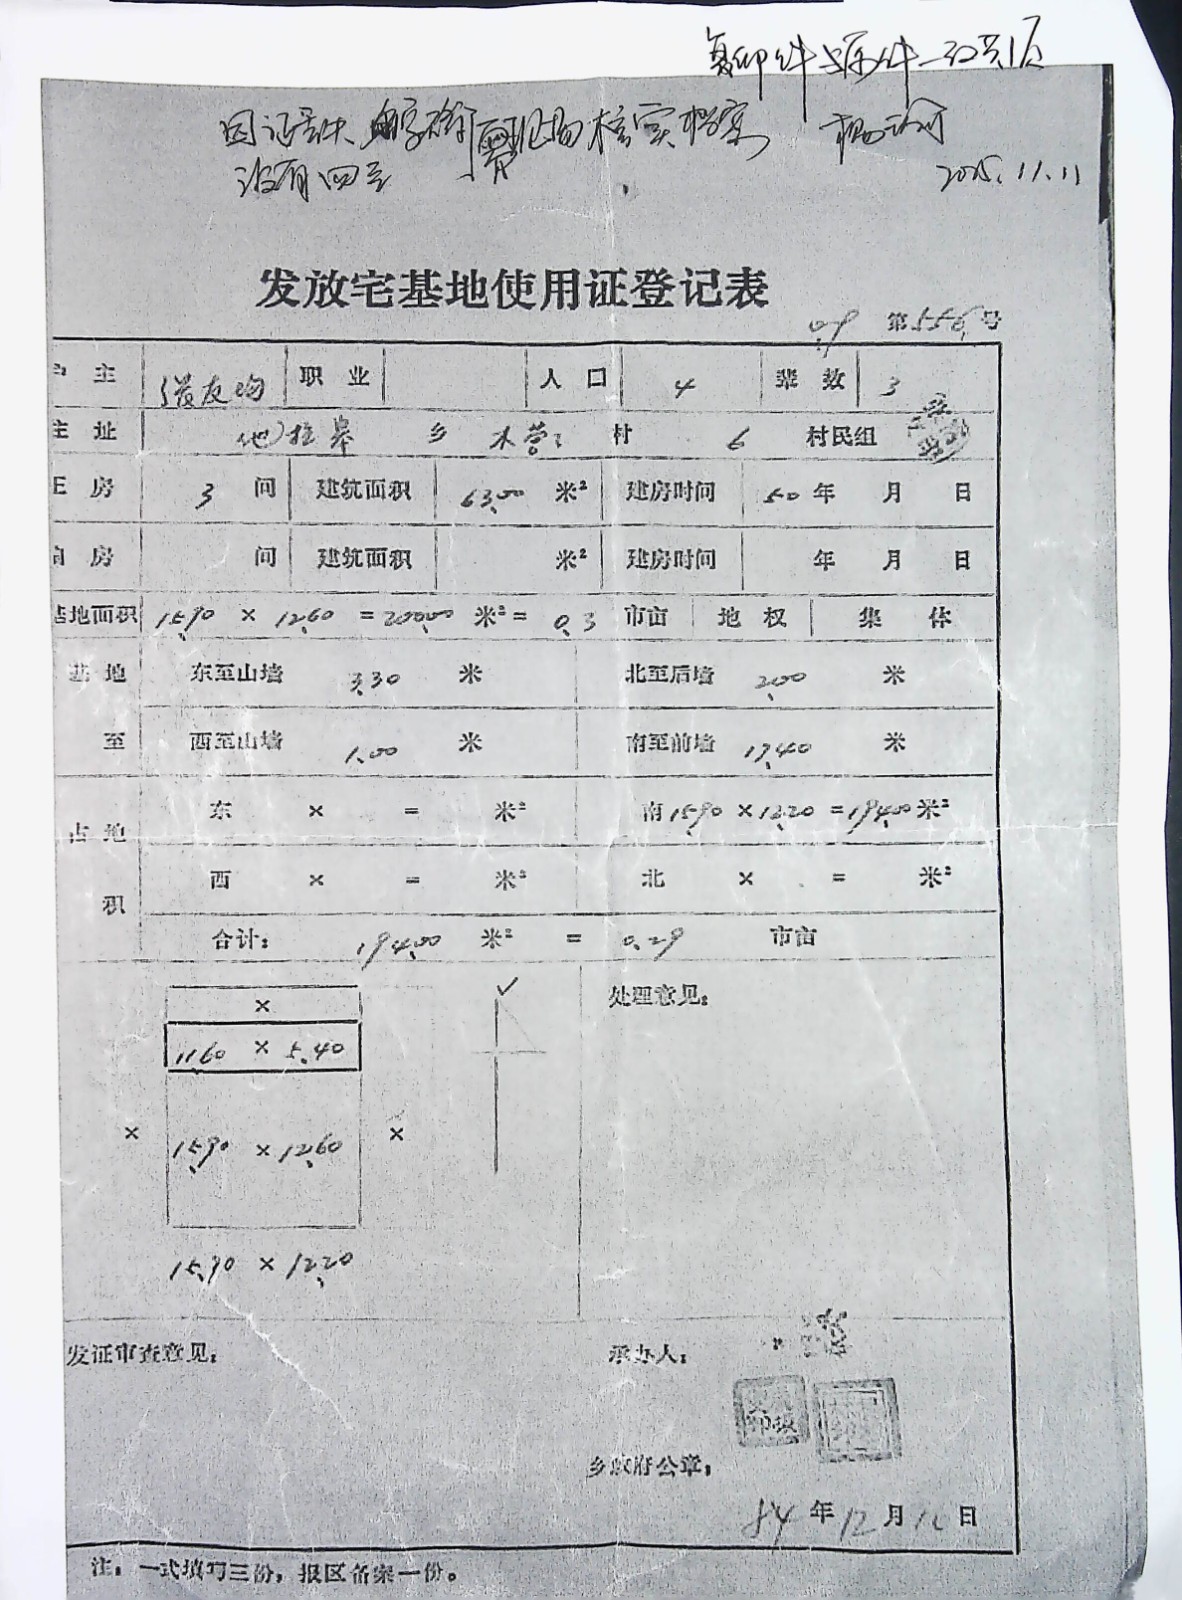 复印件与原件一致共1页
因证丢失 需现场核实档案
没有四至
2015.11.11
发放宅基地使用证登记表
第556号
主 张友均 职业 人口 4 辈数 3
址 乡 木营 村 6 村民组
房 3 间 建筑面积 63.00 米² 建房时间 50年 月 日
房 间 建筑面积 米² 建房时间 年 月 日
基地面积 15.90 × 12.60 = 200.00 米² = 0.3 市亩 地权 集体
基地 东至山墙 3.30 米 北至后墙 2.00 米
至 西至山墙 1.00 米 南至前墙 17.40 米
占地 东 × = 米² 南15.90 × 12.20 = 194.00米²
积 西 × = 米² 北 × = 米²
合计: 194.00 米² = 0.29 市亩
处理意见:
×
11.60 × 5.40
× 15.90 × 12.60 ×
15.90 × 12.20
发证审查意见: 承办人:
乡政府公章:
84年12月 日
注:一式填写三份,报区备案一份。